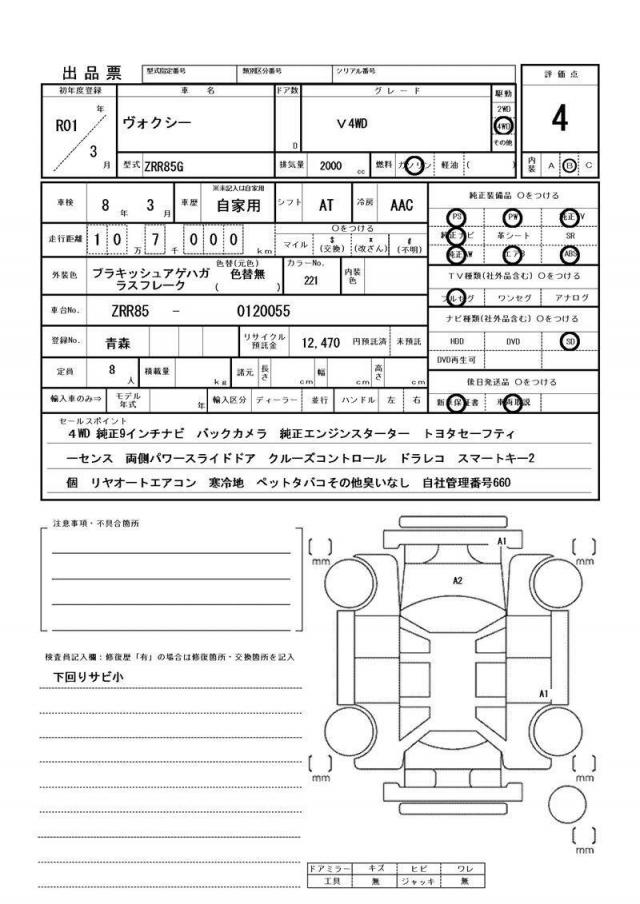 出品票 型式指定番号 類別区分番号 シリアル番号 評価点
初年度登録 車名 ドア数 グレード 駆動
R01 年 3 月 ヴォクシー D V 4WD 2WD 4WD その他 4
型式 ZRR85G 排気量 2000 cc 燃料 ガソリン 軽油 ( ) 内装 A B C
車検 8 年 3 月 車歴 ※未記入は自家用 自家用 シフト AT 冷房 AAC 純正装備品 ○をつける
PS PW 純正TV
走行距離 1 0 万 7 千 0 0 0 km ○をつける マイル $ (交換) * (改ざん) # (不明) 純正ナビ 革シート SR
純正AW エアB ABS
外装色 ブラキッシュアゲハガラスフレーク 色替(元色) 色替無 ( ) カラーNo. 221 内装色 TV種類(社外品含む) ○をつける
フルセグ ワンセグ アナログ
車台No. ZRR85 - 0120055 ナビ種類(社外品含む) ○をつける
登録No. 青森 リサイクル預託金 12,470 円預託済 未預託 HDD DVD SD
DVD再生可
定員 8 人 積載量 kg 諸元 長さ cm 幅 cm 高さ cm 後日発送品 ○をつける
輸入車のみ⇒ モデル年式 年 輸入区分 ディーラー 並行 ハンドル 左 右 新車保証書 車両取説
セールスポイント
4WD 純正9インチナビ バックカメラ 純正エンジンスターター トヨタセーフティ
ーセンス 両側パワースライドドア クルーズコントロール ドラレコ スマートキー2
個 リヤオートエアコン 寒冷地 ペットタバコその他臭いなし 自社管理番号660
注意事項・不具合箇所
検査員記入欄：修復歴「有」の場合は修復箇所・交換箇所を記入
下回りサビ小
[ ] mm A1 [ ] mm
A2
A1
[ ] mm [ ] mm
[ ] mm
ドアミラー キズ ヒビ ワレ
工具 無 ジャッキ 無